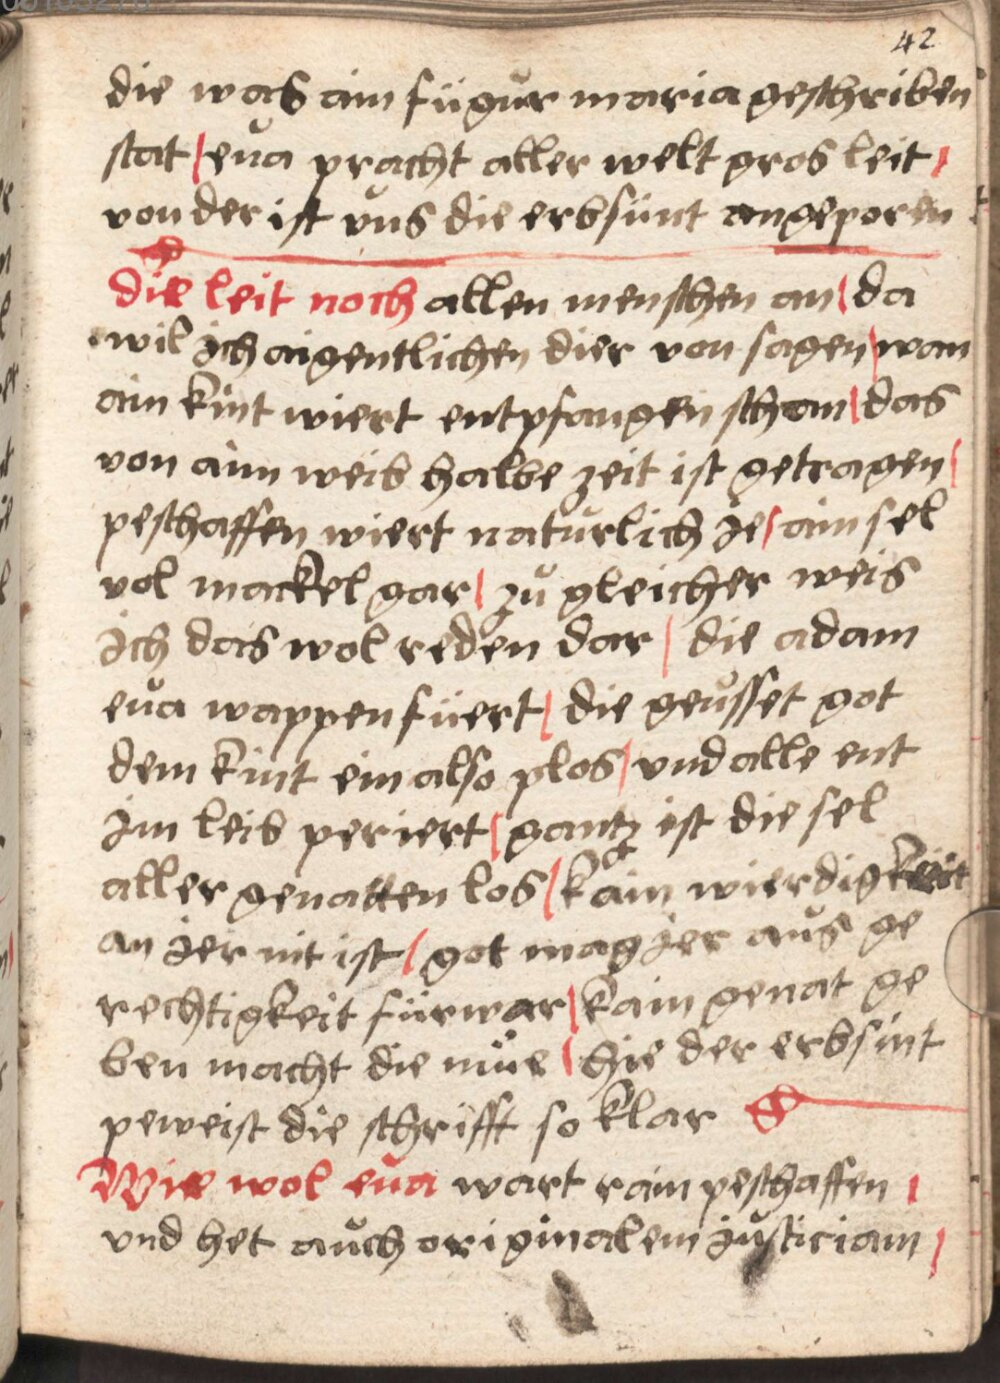 42
die was ain fügur maria geschriben
stat / eůa pracht aller welt gros leit /
von der ist vns die erbsünt angeporen
die leit noch allen menschen an / da
wil ich aigentlichen dier von sagen / wan
ain kint wiert entpfangen schan / das
von aim weib halbe zeit ist getragen /
peschaffen wiert natůrlich ie / ain sel
vol mackel gar / zů gleicher weis
ich das wol reden dar / die adam
eůa wappen füert / die geůsset got
dem kint ein also plos / vnd alle ent
im leib periert / gantz ist die sel
aller genaden los / kain wierdigkeit
an ier nit ist / got mag ier aůs ge
rechtigkeit fürwar / kain genat ge
ben macht die müe / hie der erbsint
peweist die schrifft so klar
Wie wol eůa wart rain peschaffen /
vnd het aůch originalem iůsticiam /